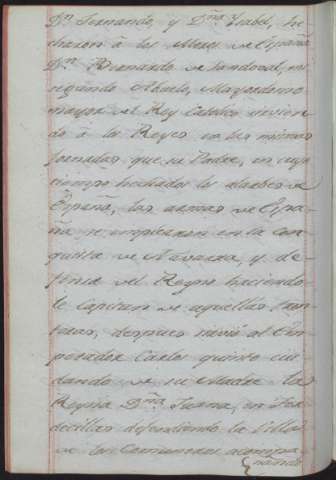 Dn Fernando, y Dña Isabel, he
charon à los Moros de España
Dn Bernardo de Sandoval, mi
segundo Abuelo, Mayordomo
mayor del Rey Catolico sirvien
do à los Reyes en las mismas
jornadas que su Padre, en cuyo
tiempo hechados los alarbes de
España, las armas de Espa
ña se emplearon en la con
quista de Navarra, y de
fensa del Reyno haciendo
le Capitan de aquellas fron
teras, despues sirvió al Em
perador Carlos quinto cui
dando de su Madre la
Reyna Dña Juana, en Tor
decillas defendiendo la Villa
de los Comuneros acompa
ñando